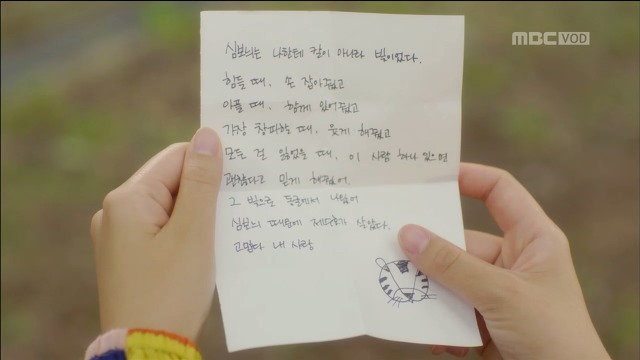 MBC VOD
심보늬는 나한테 칼이 아니라 빛이었다.
힘들 때, 손 잡아줬고
아플 때, 함께 있어줬고
가장 창피할 때, 웃게 해줬고
모든 걸 잃었을 때, 이 사람 하나 있으면
괜찮다고 믿게 해줬어
그 빛으로 동굴에서 나왔어
심보늬 때문에 제수호가 살았다.
고맙다 내 사랑